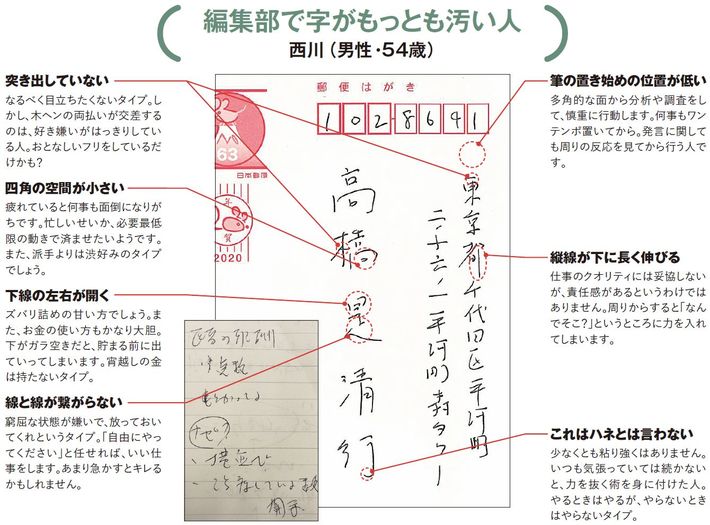 編集部で字がもっとも汚い人
西川（男性・54歳）
突き出していない
なるべく目立ちたくないタイプ。し
かし、木ヘンの両払いが交差する
のは、好き嫌いがはっきりしている
人。おとなしいフリをしているだ
けかも?
四角の空間が小さい
疲れていると何事も面倒になりが
ちです。忙しいせいか、必要最低
限の動きで済ませたいようです。
また、派手よりは渋好みのタイプ
でしょう。
下線の左右が開く
ズバリ詰めの甘い方でしょう。ま
た、お金の使い方もかなり大胆。
下がガラ空きだと、貯まる前に出
ていってしまいます。宵越しの金
は持たないタイプ。
線と線が繋がらない
窮屈な状態が嫌いで、放っておい
てくれというタイプ。「自由にやっ
てください」と任せれば、いい仕
事をします。あまり急かすとキレる
かもしれません。
郵便はがき
102-8641
東京都千代田区平河町
二-十六-一 平河町森タワー
高橋是清行
63
日本郵便
年賀
2020
筆の置き始めの位置が低い
多角的な面から分析や調査をし
て、慎重に行動します。何事もワン
テンポ置いてから。発言に関して
も周りの反応を見てから行う人で
す。
縦線が下に長く伸びる
仕事のクオリティには妥協しない
が、責任感があるというわけでは
ありません。周りからすると「なん
でそこ?」というところに力を入れ
てしまいます。
これはハネとは言わない
少なくとも粘り強くはありません。
いつも気張っていては続かない
と、力を抜く術を身に付けた人。
やるときはやるが、やらないとき
はやらないタイプ。